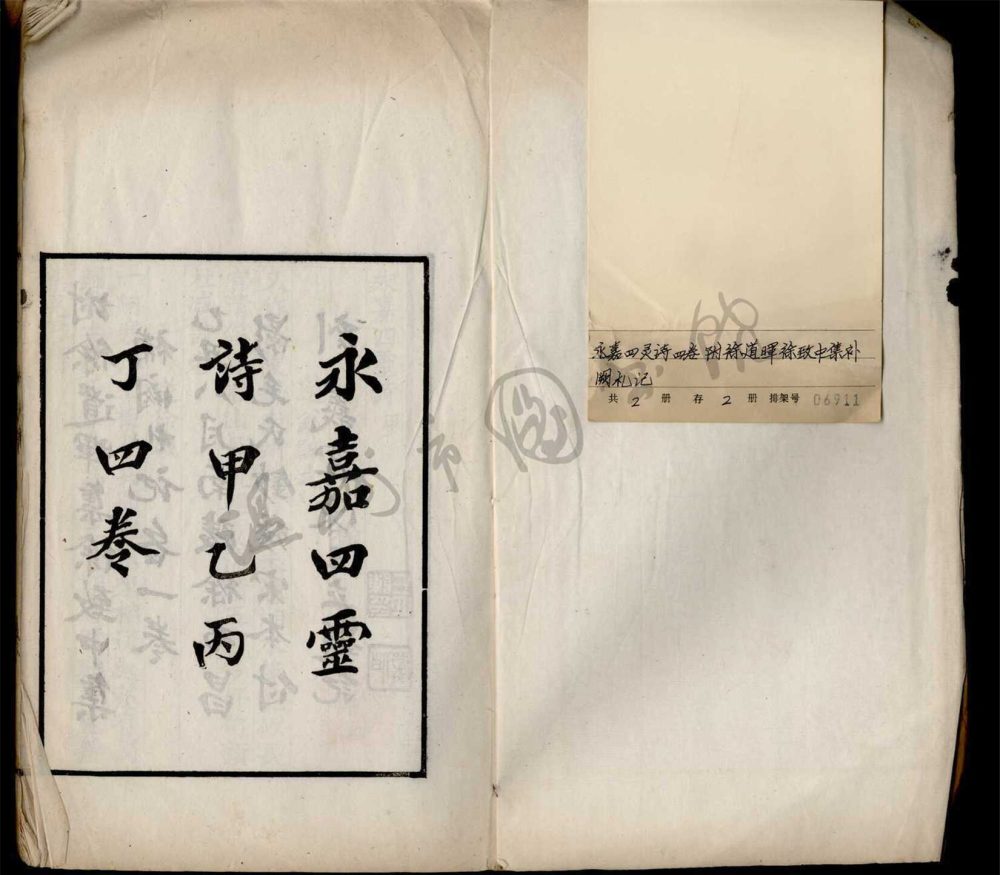 永嘉四灵诗四卷附徐道暉徐致中集补
阙札记
共 2 册 存 2 册 排架号 06911
永嘉四靈
詩甲乙丙
丁四卷